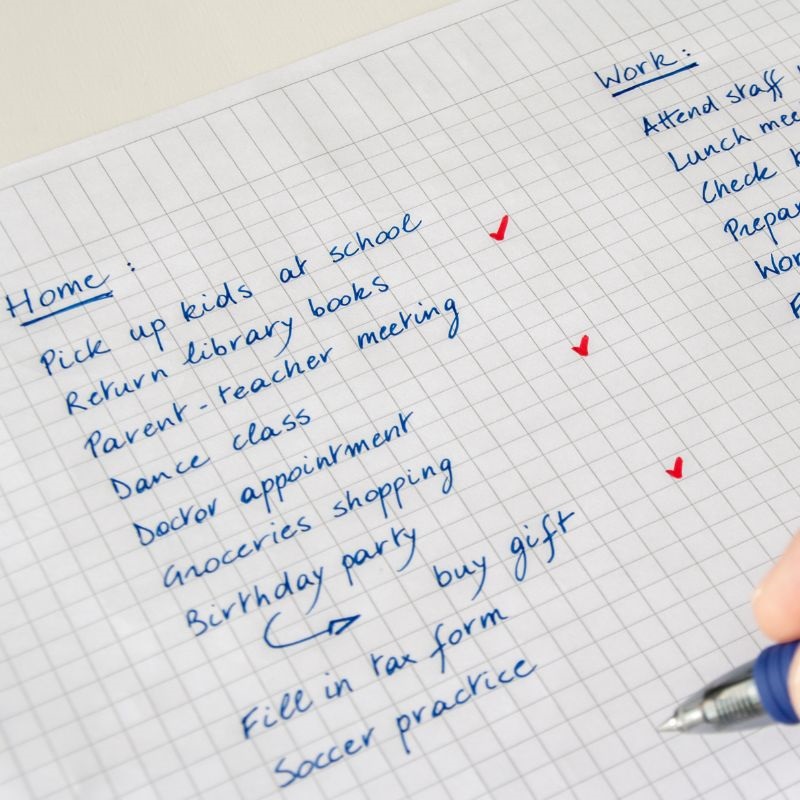 Home:
Pick up kids at school
Return library books
Parent-teacher meeting
Dance class
Doctor appointment
Groceries shopping
Birthday party
buy gift
Fill in tax form
Soccer practice
Work:
Attend staff
Lunch
Check